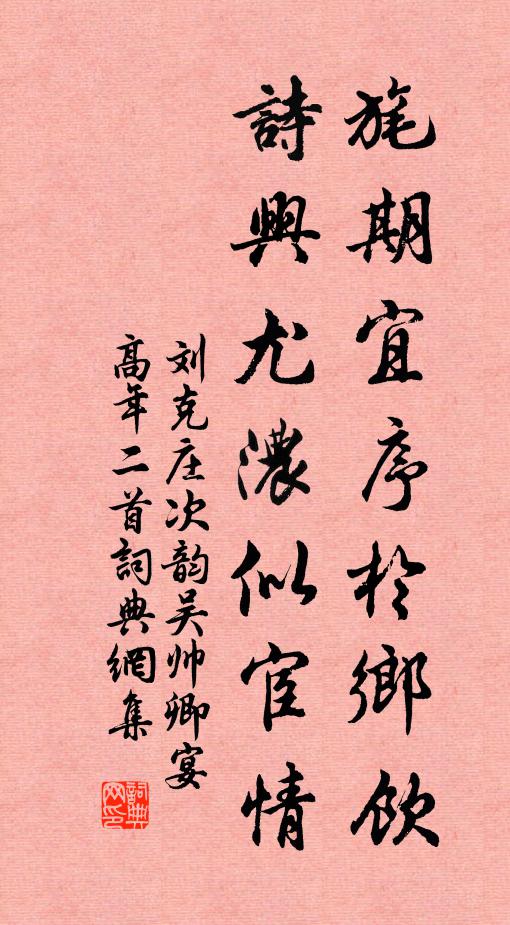 旄期宜序於鄉飲
詩興尤濃似宦情
刘克庄次韵吴帅卿宴
高年二首詞典網集
詞典
网印